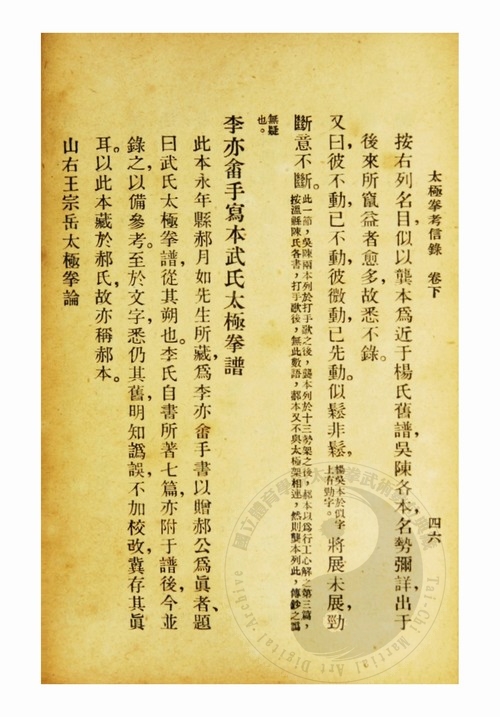 太極拳考信錄 卷下 四六
按右列名目，似以龔本爲近于楊氏舊譜，吳陳各本，名勢彌詳，出于
後來所竄益者愈多，故悉不錄。
又曰，彼不動，己不動，彼微動，己先動。似鬆非鬆，楊吳本於似字上有勁字。將展未展，勁
斷意不斷。此一節，吳陳兩本列於打手歌之後，龔本列於十三勢架之後，郝本以爲行工心解之第三篇，按溫縣陳氏各書，打手歌後，無此數語，郝本又不與太極架相連，然則龔本列此，傳鈔之譌
無疑也。
李亦畬手寫本武氏太極拳譜
此本永年縣郝月如先生所藏，爲李亦畬手書以贈郝公爲眞者，題
曰武氏太極拳譜，從其朔也。李氏自書所著七篇，亦附于譜後，今並
錄之，以備參考。至於文字，悉仍其舊，明知譌誤，不加校改，冀存其眞
耳。以此本藏於郝氏，故亦稱郝本。
山右王宗岳太極拳論
Tai-Chi Martial Art Digital Archive